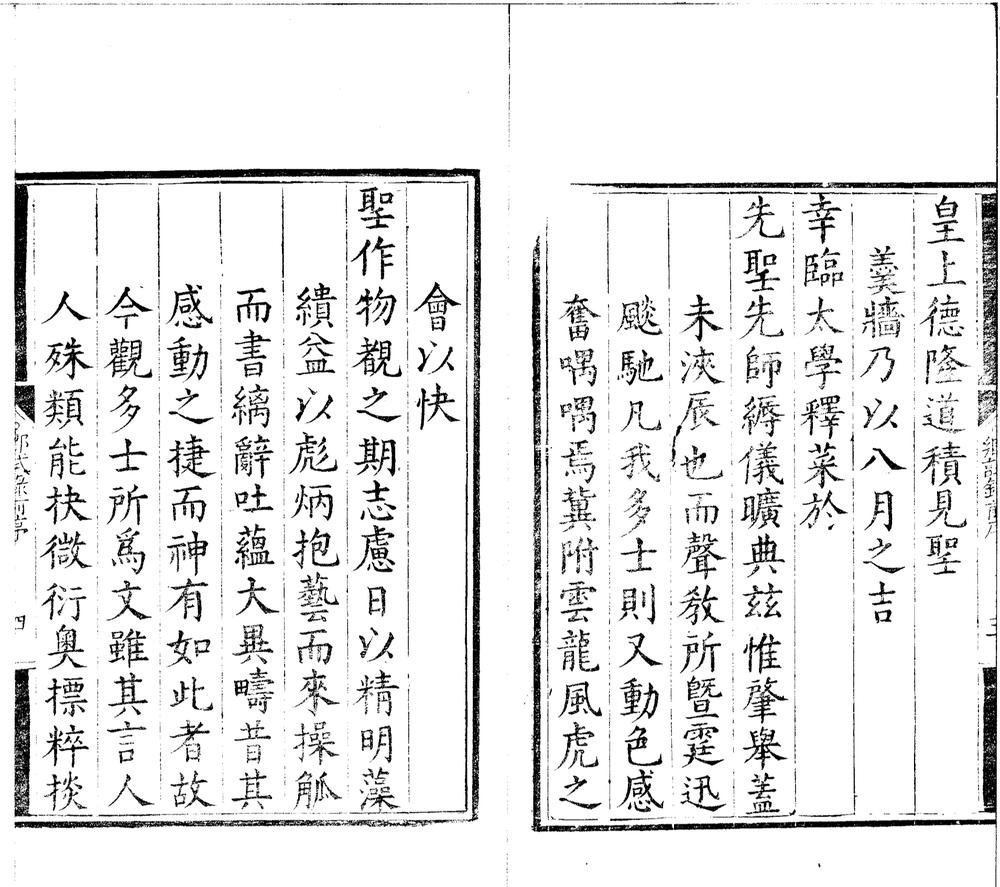 皇上德隆道積見聖
羹牆乃以八月之吉
幸臨太學釋菜於
先聖先師縟儀曠典茲惟肇舉蓋
未浹辰也而聲敎所曁霆迅
颷馳凡我多士則又動色感
奮喁喁焉冀附雲龍風虎之
會以快
聖作物覩之期志慮日以精明藻
繢益以彪炳抱藝而來操觚
而書縭辭吐蘊大異疇昔其
感動之捷而神有如此者故
今觀多士所爲文雖其言人
人殊類能抉微衍奥摽粹掞
三
四